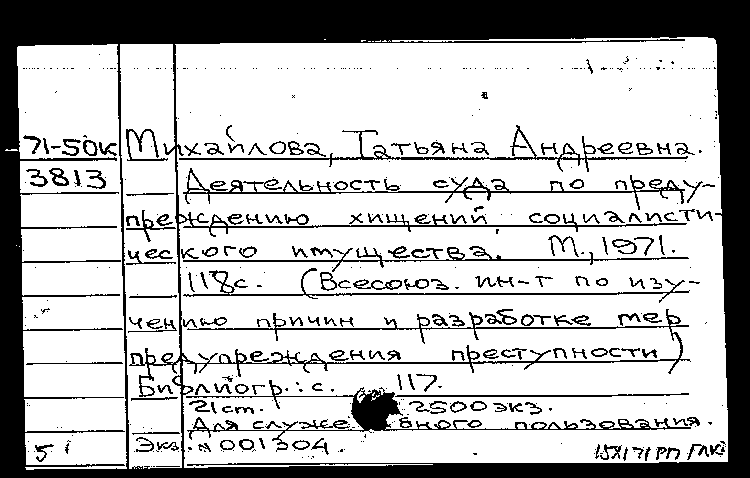 71-50к Михайлова, Татьяна Андреевна.
3813 Деятельность суда по преду-
преждению хищений социалисти-
ческого имущества. М., 1971.
118с. (Всесоюз. ин-т по изу-
чению причин и разработке мер
предупреждения преступности)
Библиогр.: с. 117.
21 cm. 2500 экз.
Для служебного пользования.
5 Экз. № 001304.